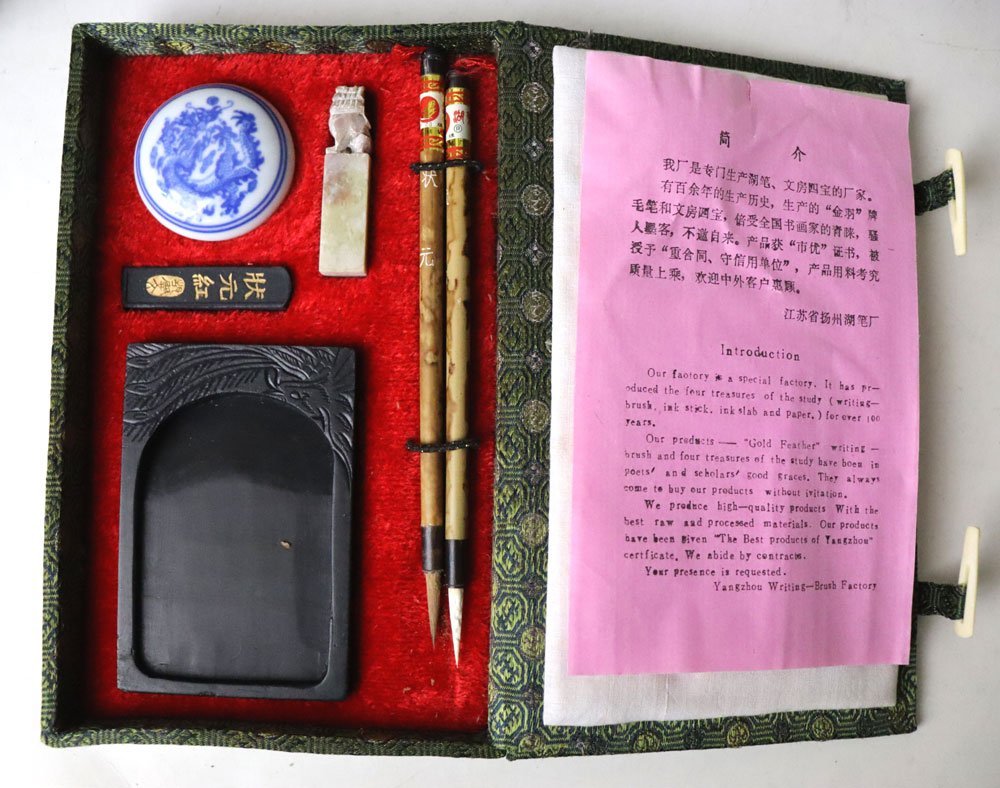 状元
狀元紅
简 介
我厂是专门生产湖笔、文房四宝的厂家。
有百余年的生产历史，生产的“金羽”牌
毛笔和文房四宝，倍受全国书画家的青睐，骚
人墨客，不邀自来。产品获“市优”证书，被
授予“重合同、守信用单位”，产品用料考究
质量上乘，欢迎中外客户惠顾。
江苏省扬州湖笔厂
Introduction
Our faotory is a special factory. It has pr—
oduced the four treasures of the study (writing—
brush, ink stick, ink slab and paper.) for over 100
years.
Our products — "Gold Feather" writing —
brush and four treasures of the study have been in
poets' and scholars' good graces. They always
come to buy our products without ivitation.
We produce high—quality products With the
best raw and processed materials. Our products
have been given "The Best products of Yangzhou"
certficate. We abide by contracts.
Your presence is requested.
Yangzhou Writing—Brush Factory